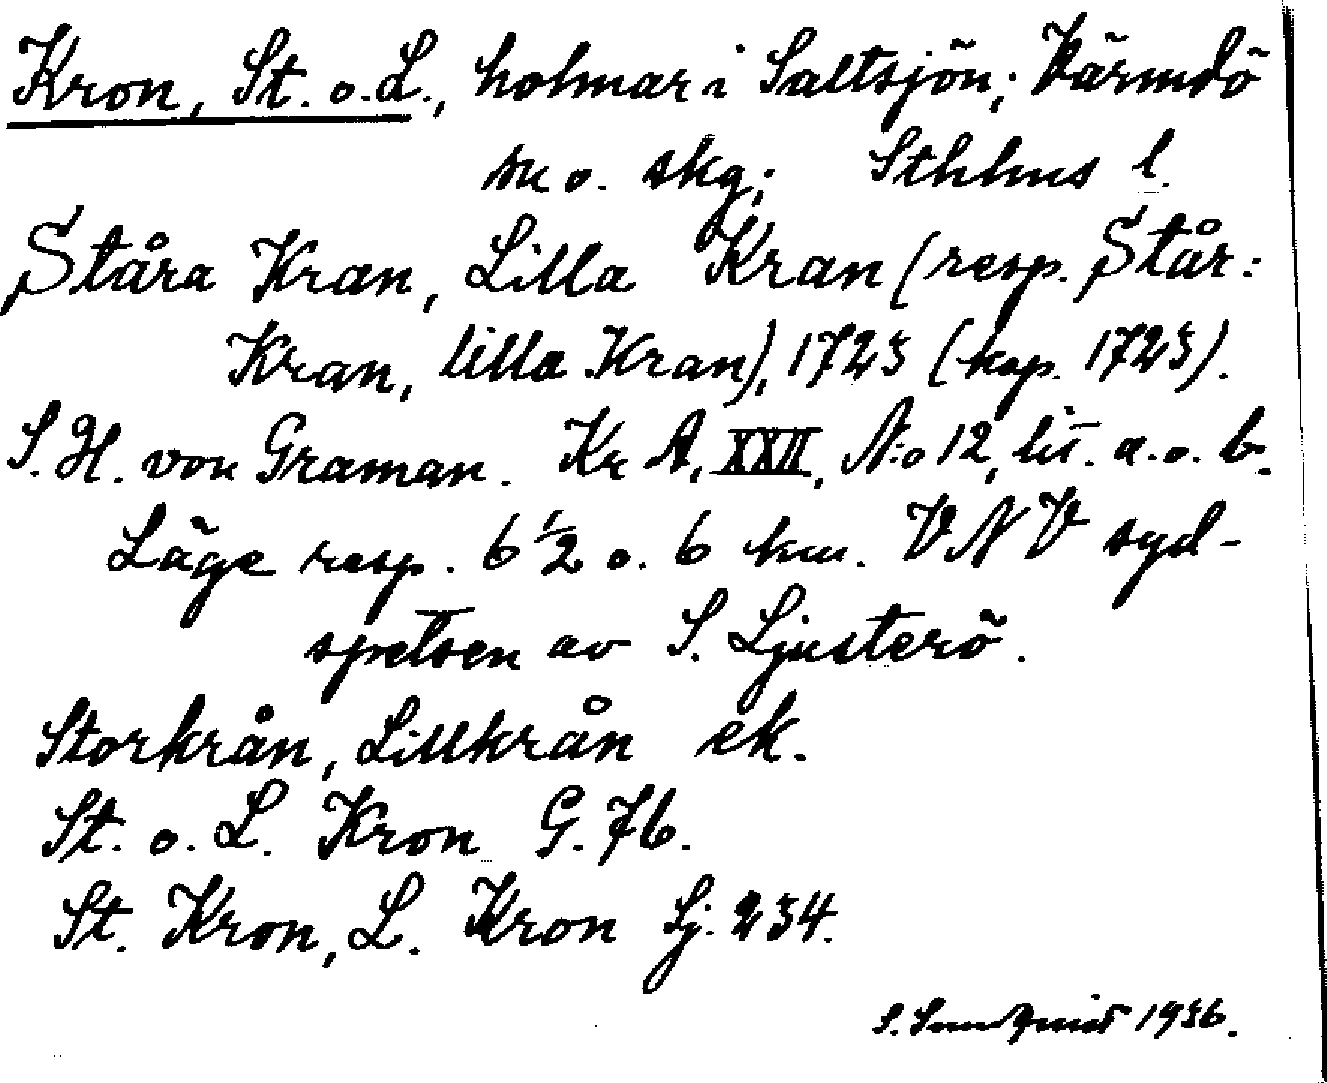 Kron, St. o. L., holmar i Saltsjön; Värmdö
sn o. skg; Sthlms l.
Ståra Kran, Lilla Kran (resp. Står:
Kran, lilla Kran), 1723 (kop. 1723).
S. H. von Graman. Kr A, XXII, N:o 12, lit. a. o. b.
Läge resp. 6 1/2 o. 6 km. VNV syd-
spetsen av S. Ljusterö.
Storkrån, Lillkrån ek.
St. o. L. Kron G. 76.
St. Kron, L. Kron Sj. 234.
S. Sundquist 1936.